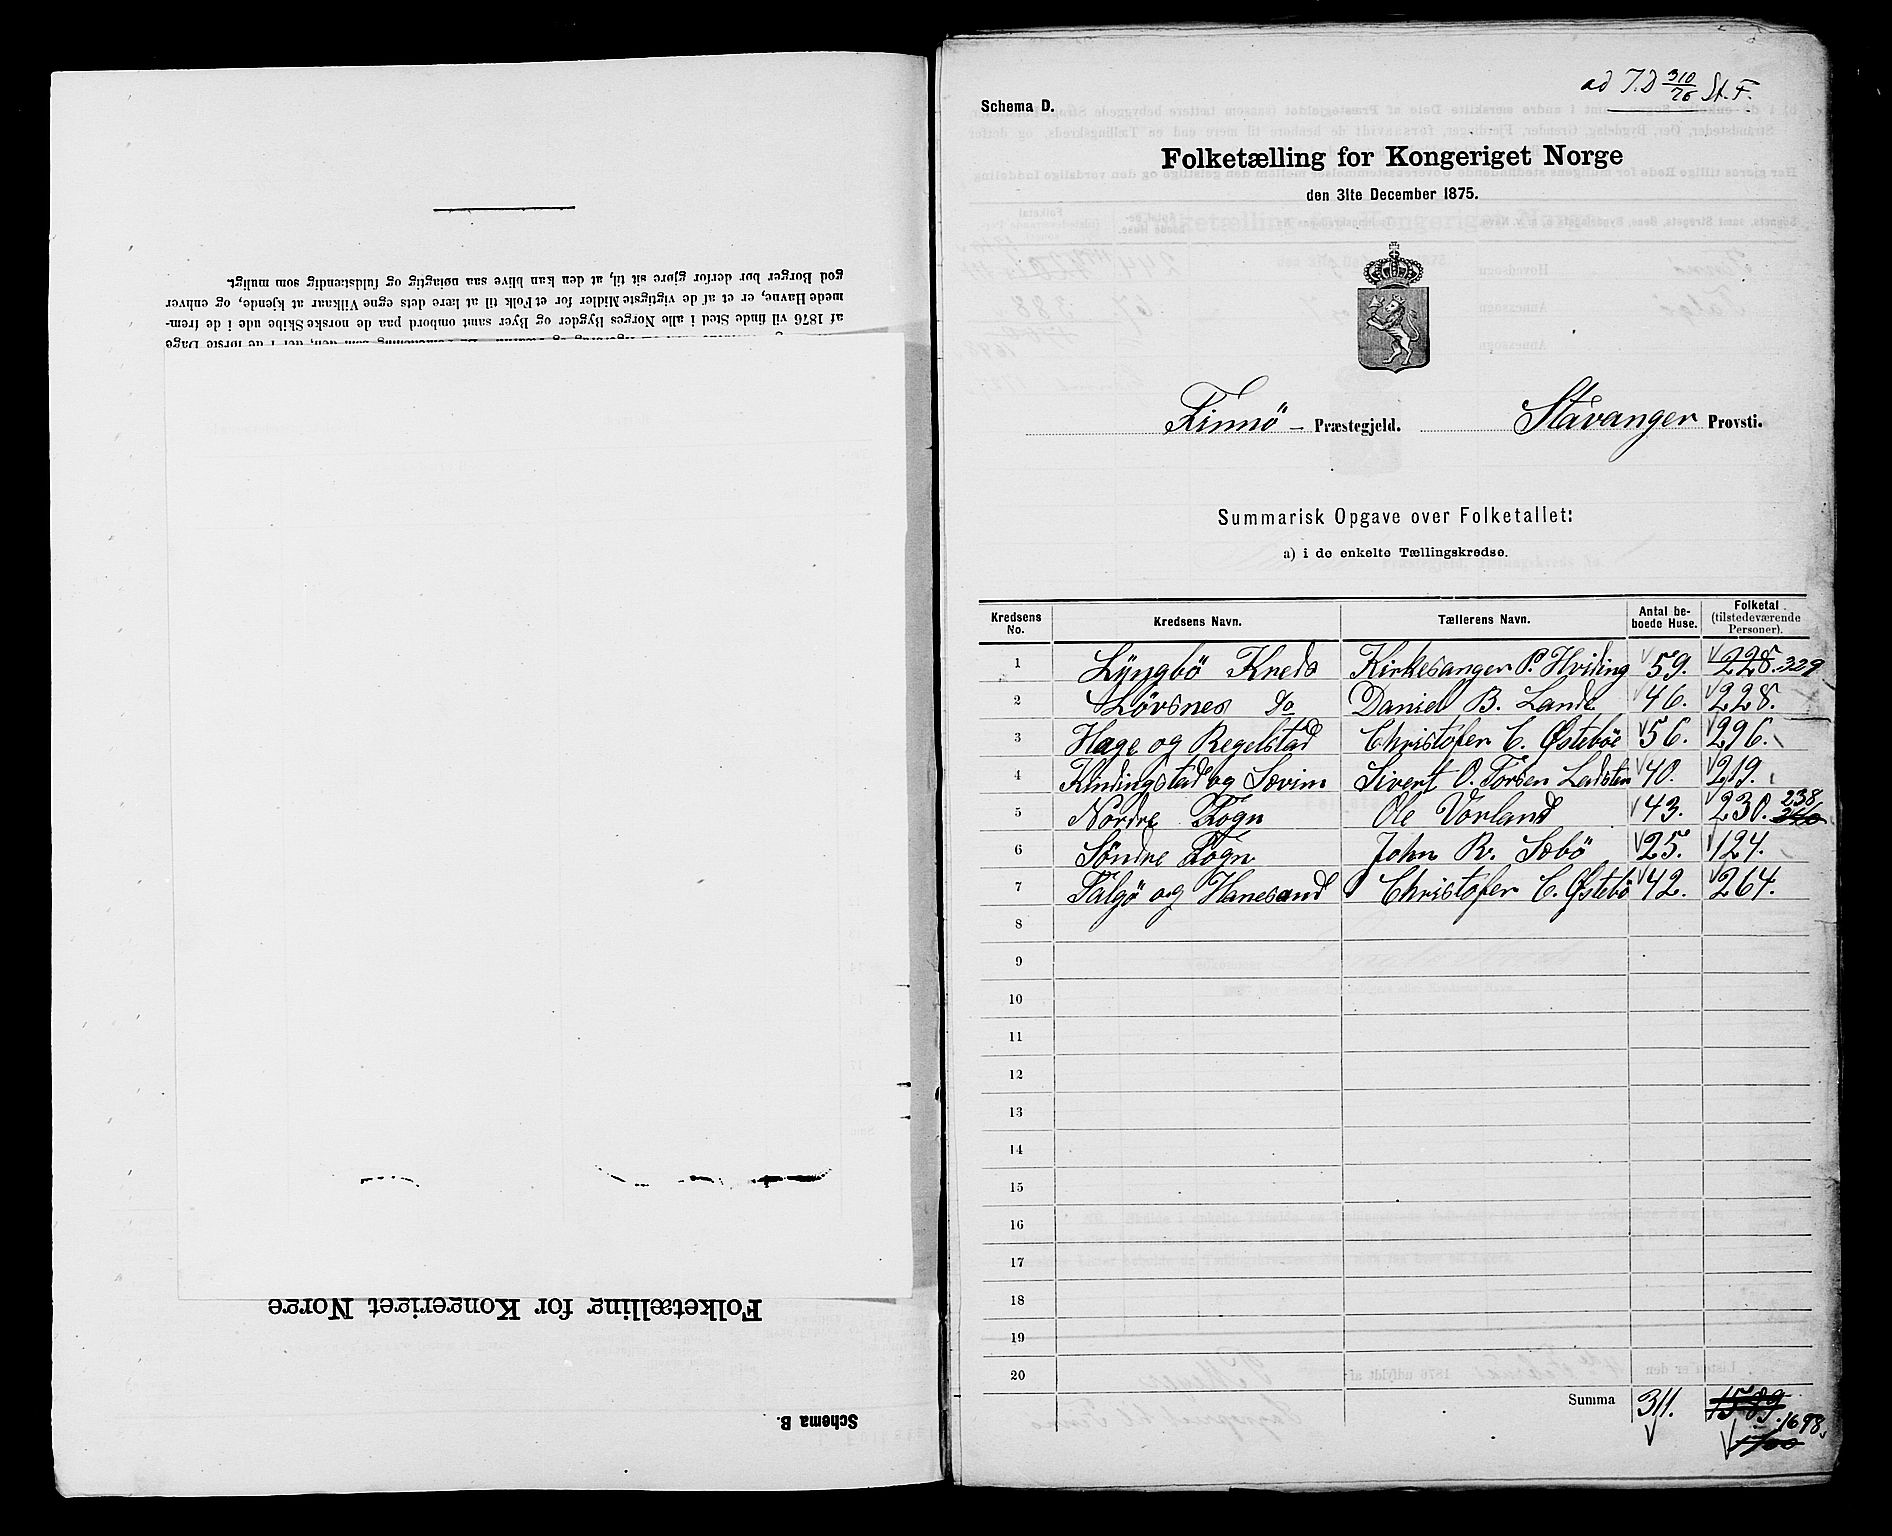 god Borger bør derfor gjøre sit til, at den kan blive saa nøiagtig og fuldstændig som muligt.
mede Havne, er et af de vigtigste Midler for et Folk til at lære dets egne Vilkaar at kjende, og enhver
af 1876 vil finde Sted i alle Norges Bygder og Byer samt ombord paa de norske Skibe ude i de frem-
Folketælling for Kongeriget Norge
Schema B.
ad J.D 310/76 St. F.
Schema D.
Folketælling for Kongeriget Norge
den 31te December 1875.
Finnö – Præstegjeld. Stavanger Provsti.
Summarisk Opgave over Folketallet:
a) i de enkelte Tællingskredse.
Kredsens No. Kredsens Navn. Tællerens Navn. Antal be-boede Huse. Folketal (tilstedeværende Personer).
1 Lyngbö Kreds Kirkesanger P. Hviding 59. 228. 339
2 Lövsnes do Daniel B. Lande 46. 228.
3 Hage og Regelstad Christofer C. Østeböe 56. 296.
4 Kindingstad og Sævim Sivert O. Torsen Ladsten 40. 219.
5 Nordre Fogn Ole Vorland 43. 230. 238
6 Söndre Fogn John R. Sæbö 25. 124.
7 Talgö og Hanesand Christofer C. Østebö 42. 264.
8
9
10
11
12
13
14
15
16
17
18
19
20
Summa 311. 1589 1698.
1700